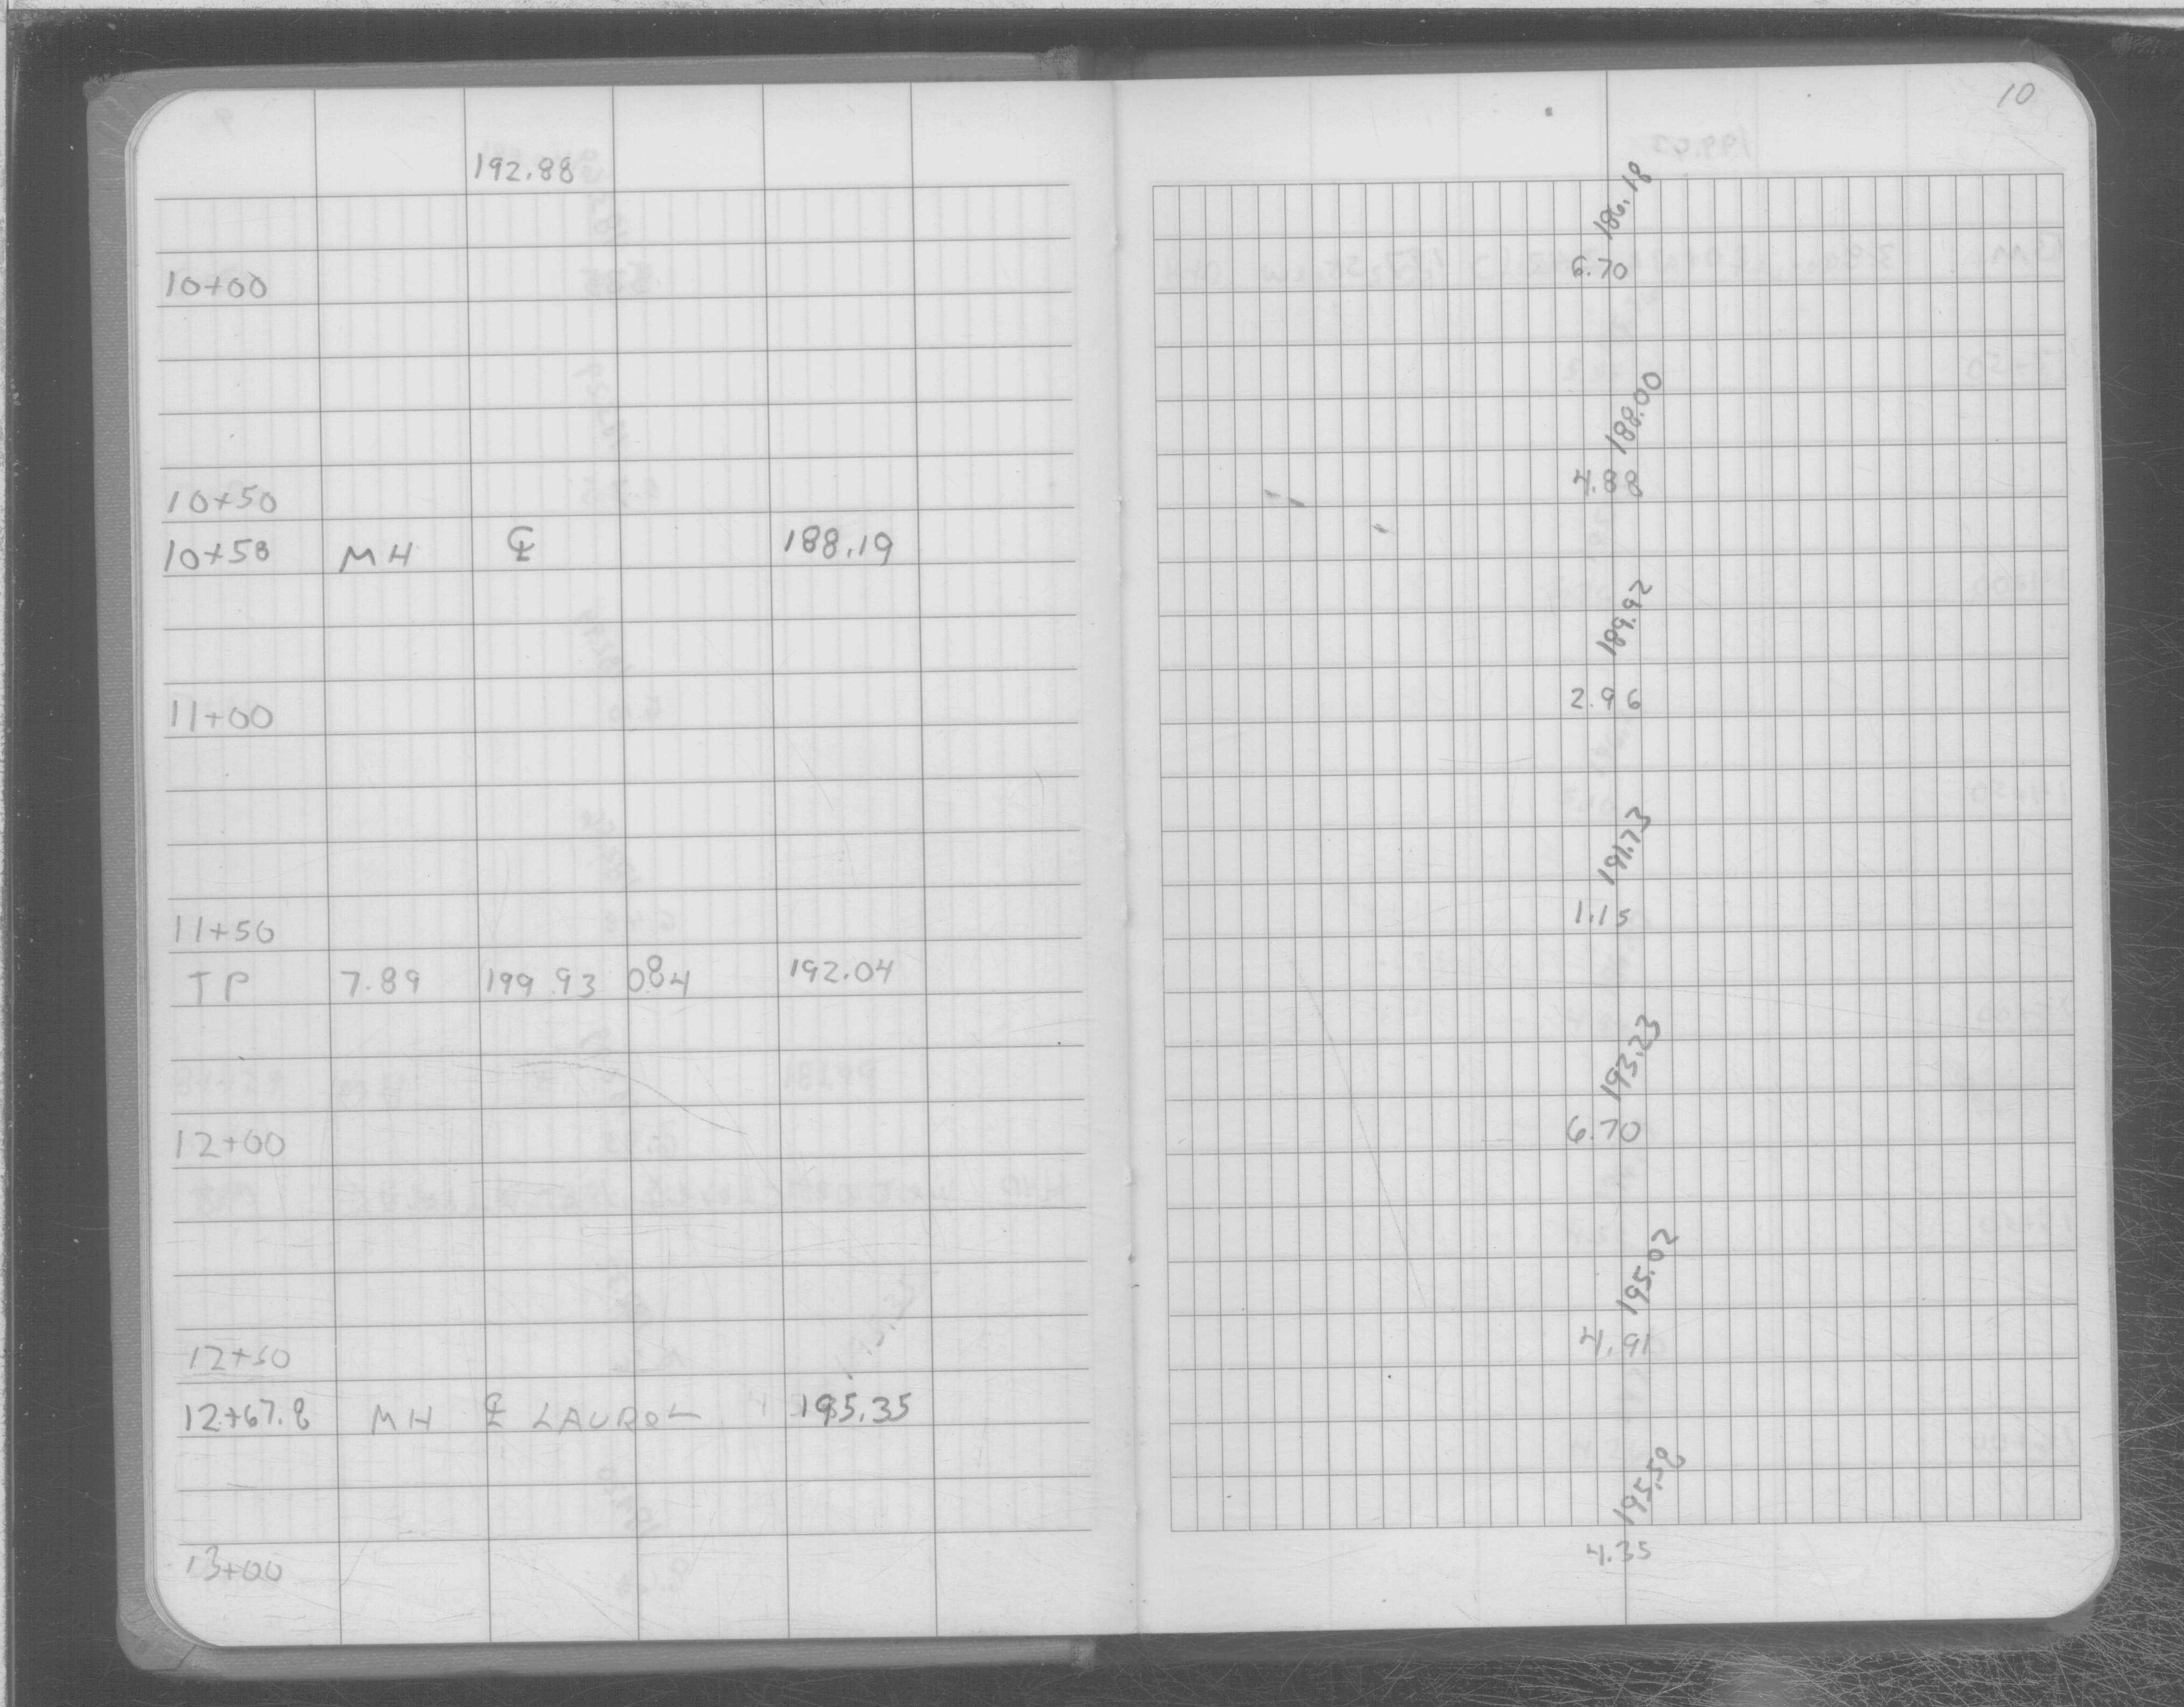 10
192.88
186.18
10+00 6.70
188.00
10+50 4.88
10+58 MH ℄ 188.19
189.92
11+00 2.96
191.73
11+50 1.15
TP 7.89 199.93 0.84 192.04
193.23
12+00 6.70
195.02
12+50 4.91
12+67.8 MH ℄ LAUREL 195.35
195.58
13+00 4.35